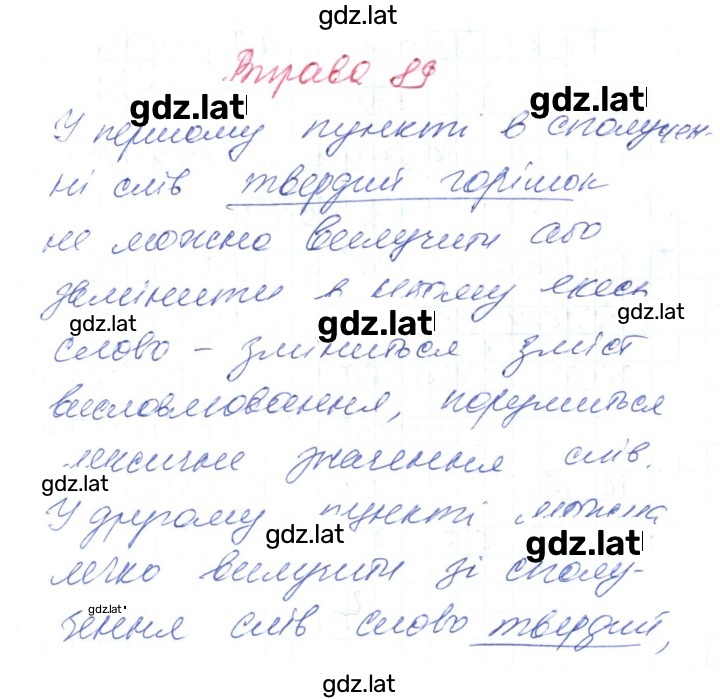 gdz.lat
Вправа 89
gdz.lat gdz.lat
У першому пункті в сполучен-
ні слів твердий горішок
не можна вилучити або
замінити в ньому якесь
gdz.lat gdz.lat gdz.lat
слово – зміниться зміст
висловлювання, порушиться
лексичне значення слів.
gdz.lat
У другому пункті можна
gdz.lat gdz.lat
легко вилучити зі сполу-
gdz.lat
чення слів слово твердий,
gdz.lat